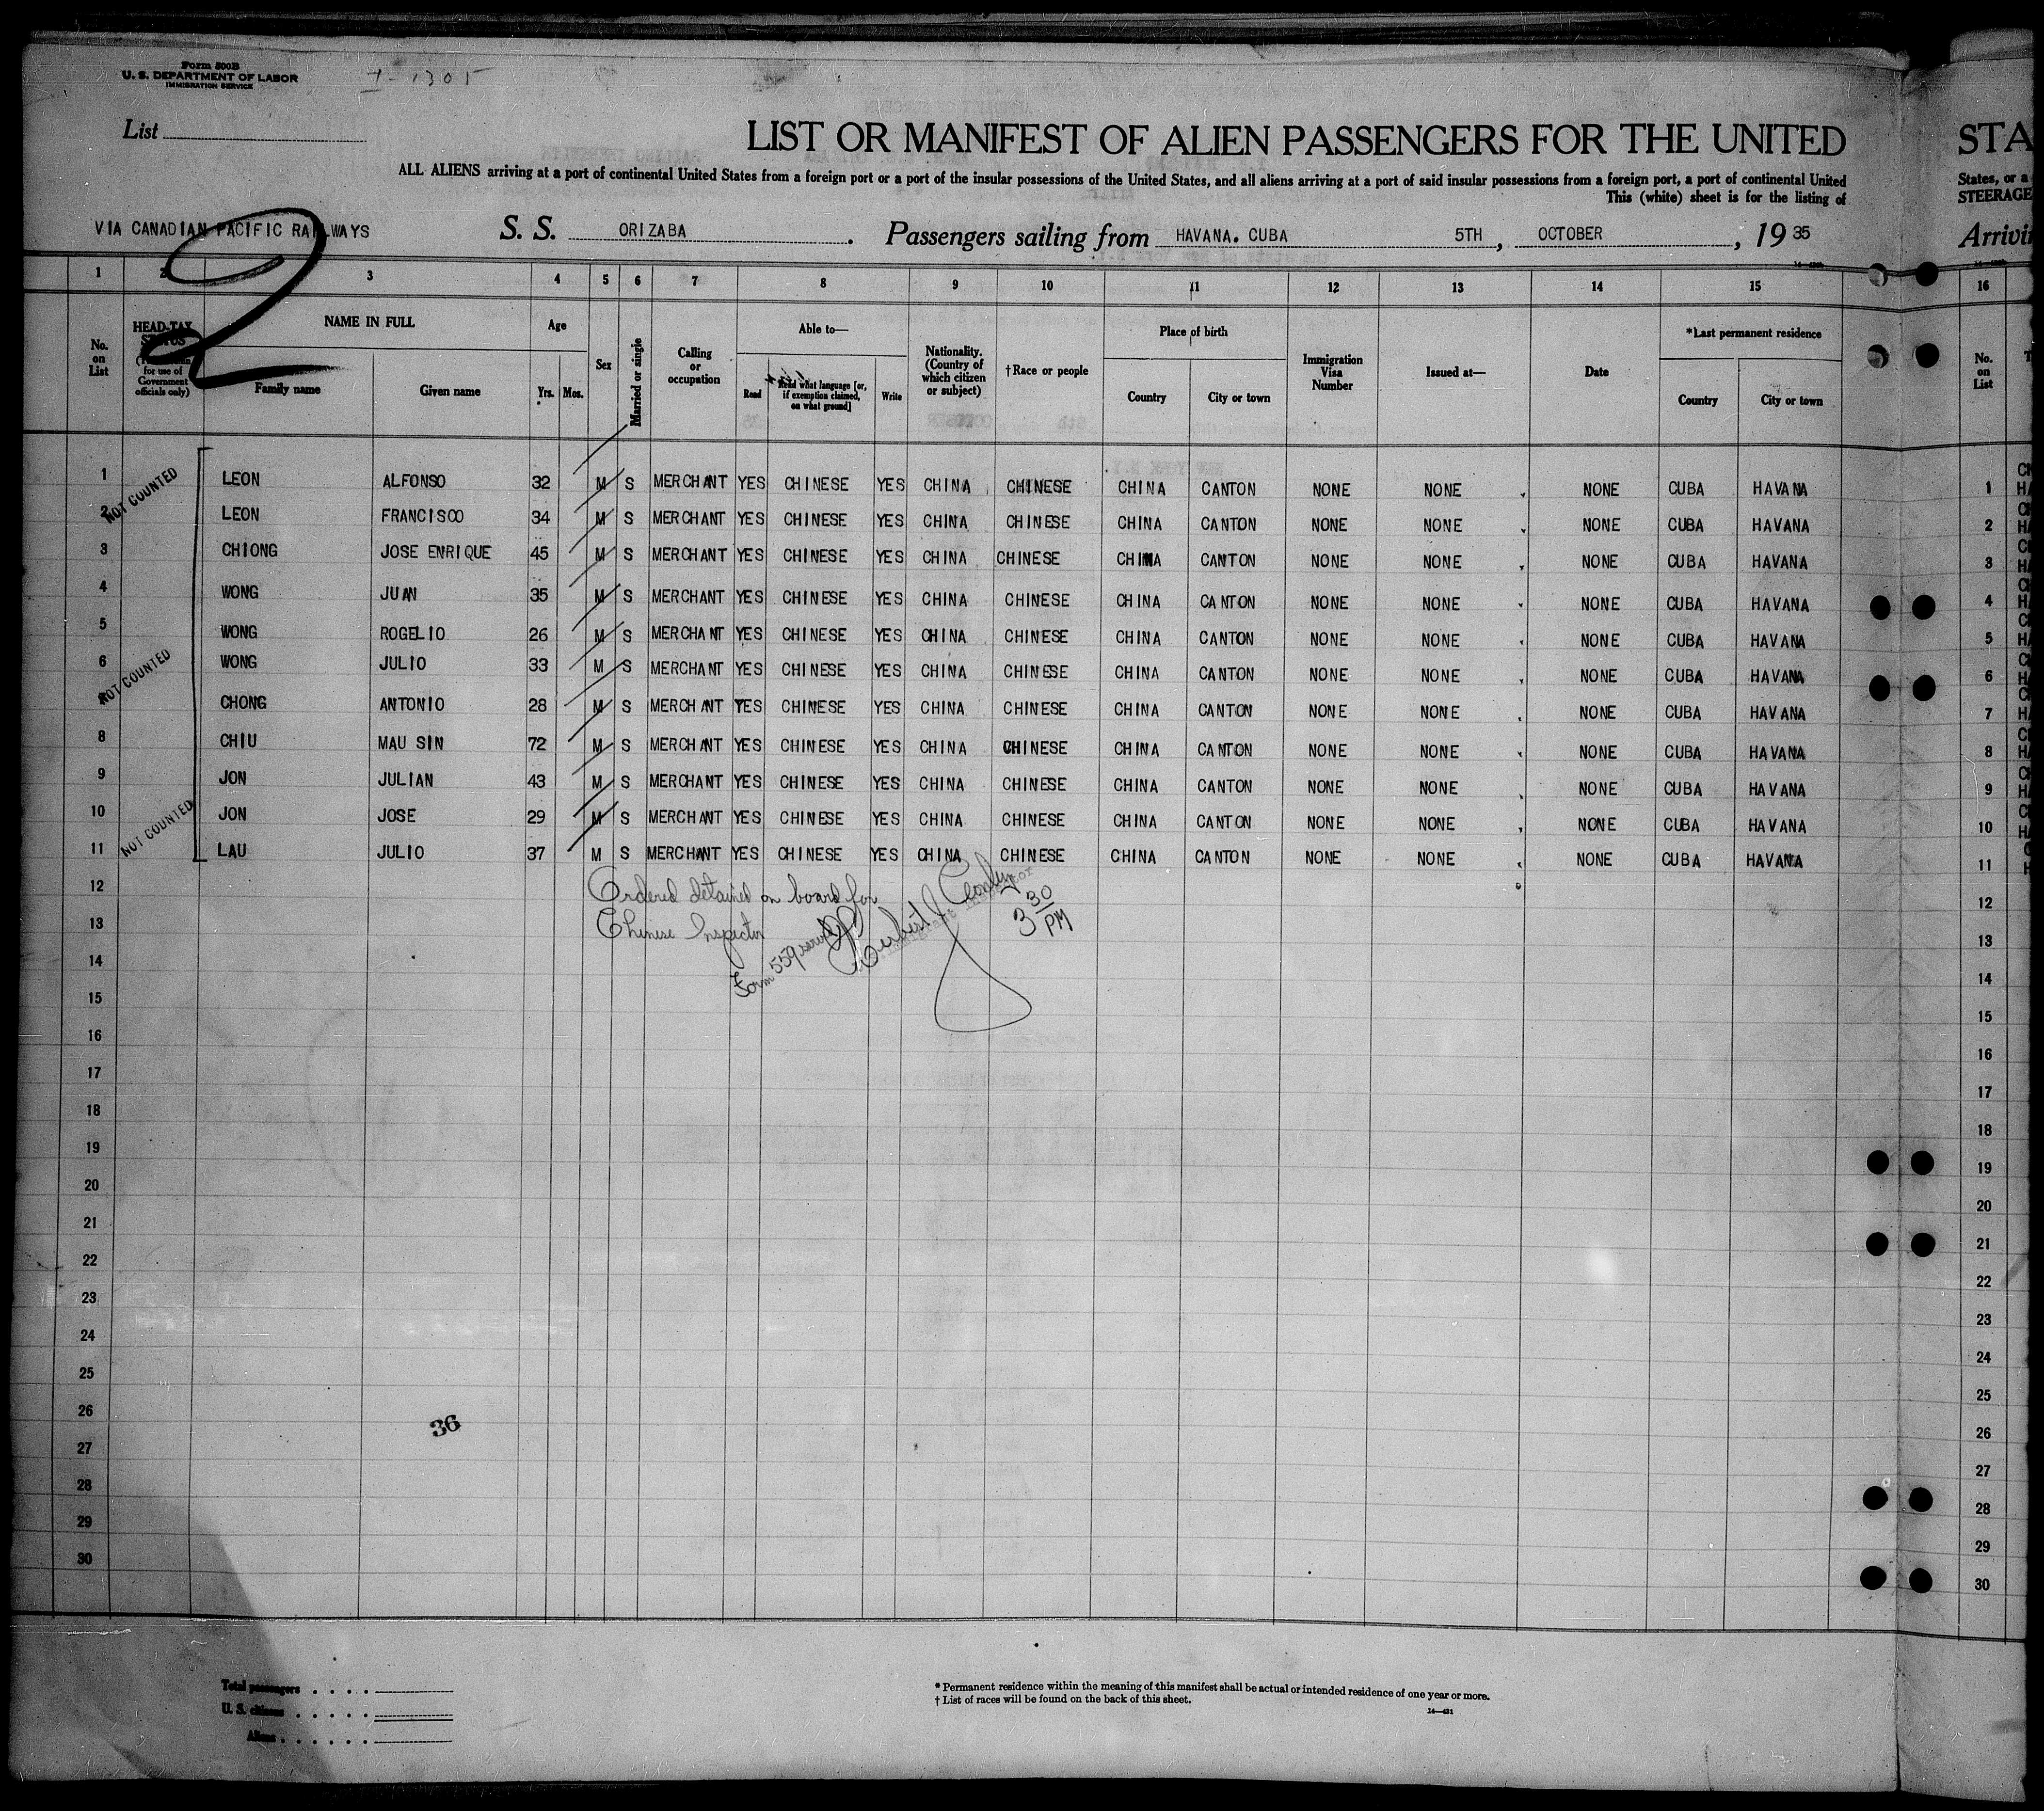 Form 500B
U. S. DEPARTMENT OF LABOR
IMMIGRATION SERVICE
I-1305
List
LIST OR MANIFEST OF ALIEN PASSENGERS FOR THE UNITED STA
ALL ALIENS arriving at a port of continental United States from a foreign port or a port of the insular possessions of the United States, and all aliens arriving at a port of said insular possessions from a foreign port, a port of continental United States, or a
This (white) sheet is for the listing of STEERAGE
VIA CANADIAN PACIFIC RAILWAYS S. S. ORIZABA. Passengers sailing from HAVANA. CUBA 5TH, OCTOBER, 1935 Arrivi
2
1 2 3 4 5 6 7 8 9 10 11 12 13 14 15 16
No. on List
HEAD-TAX STATUS
for use of Government officials only)
NAME IN FULL
Family name Given name
Age
Yrs. Mos.
Sex
Married or single
Calling or occupation
Able to—
Read Read what language [or, if exemption claimed, on what ground] Write
Nationality. (Country of which citizen or subject)
†Race or people
Place of birth
Country City or town
Immigration Visa Number
Issued at—
Date
*Last permanent residence
Country City or town
No. on List
1 LEON ALFONSO 32 M S MERCHANT YES CHINESE YES CHINA CHINESE CHINA CANTON NONE NONE NONE CUBA HAVANA 1
NOT COUNTED
2 LEON FRANCISCO 34 M S MERCHANT YES CHINESE YES CHINA CHINESE CHINA CANTON NONE NONE NONE CUBA HAVANA 2
3 CHIONG JOSE ENRIQUE 45 M S MERCHANT YES CHINESE YES CHINA CHINESE CHINA CANTON NONE NONE NONE CUBA HAVANA 3
4 WONG JUAN 35 M S MERCHANT YES CHINESE YES CHINA CHINESE CHINA CANTON NONE NONE NONE CUBA HAVANA 4
5 WONG ROGELIO 26 M S MERCHANT YES CHINESE YES CHINA CHINESE CHINA CANTON NONE NONE NONE CUBA HAVANA 5
6 WONG JULIO 33 M S MERCHANT YES CHINESE YES CHINA CHINESE CHINA CANTON NONE NONE NONE CUBA HAVANA 6
NOT COUNTED
CHONG ANTONIO 28 M S MERCHANT YES CHINESE YES CHINA CHINESE CHINA CANTON NONE NONE NONE CUBA HAVANA 7
8 CHIU MAU SIN 72 M S MERCHANT YES CHINESE YES CHINA CHINESE CHINA CANTON NONE NONE NONE CUBA HAVANA 8
9 JON JULIAN 43 M S MERCHANT YES CHINESE YES CHINA CHINESE CHINA CANTON NONE NONE NONE CUBA HAVANA 9
10 JON JOSE 29 M S MERCHANT YES CHINESE YES CHINA CHINESE CHINA CANTON NONE NONE NONE CUBA HAVANA 10
NOT COUNTED
11 LAU JULIO 37 M S MERCHANT YES CHINESE YES CHINA CHINESE CHINA CANTON NONE NONE NONE CUBA HAVANA 11
12 Ordered detained on board for 12
13 Chinese Inspector 3 30 PM 13
Form 559 served
Herbert J
14 14
15 15
16 16
17 17
18 18
19 19
20 20
21 21
22 22
23 23
24 24
25 25
26 26
36
27 27
28 28
29 29
30 30
Total passengers
U. S. citizens
Aliens
* Permanent residence within the meaning of this manifest shall be actual or intended residence of one year or more.
† List of races will be found on the back of this sheet.